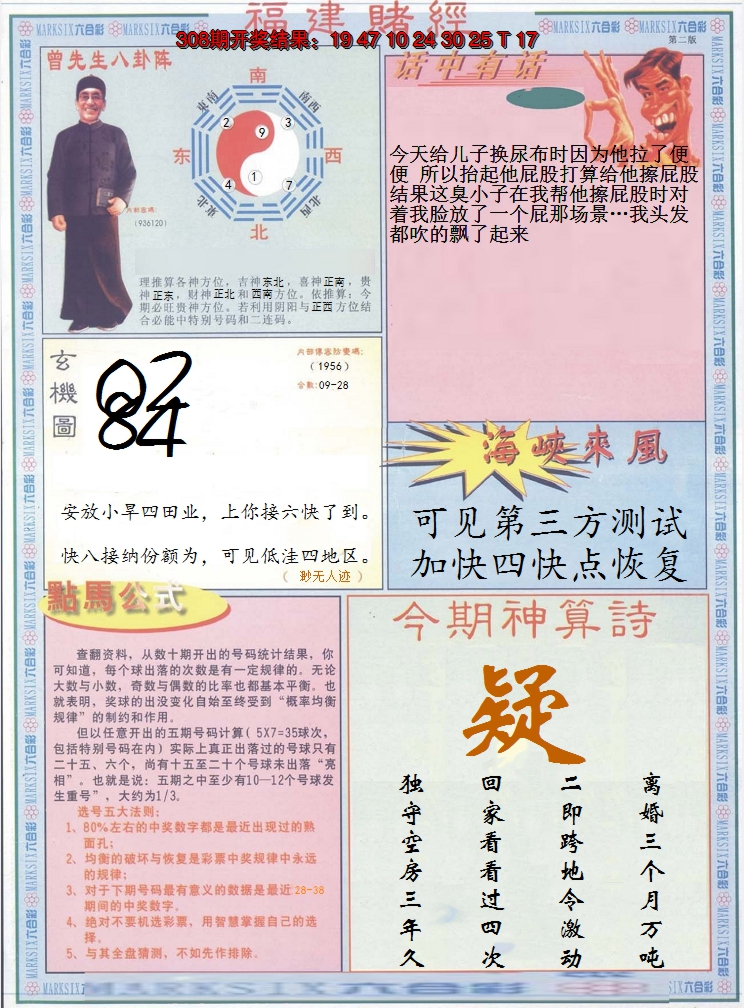 福建賭經
308期开奖结果：19 47 10 24 30 25 T 17
MARKSIX六合彩
第二版
曾先生八卦阵
南
东南
南西
2
9
3
东
西
4
1
7
东北
北西
北
内部密碼:
(936120)
理推算各神方位，吉神东北，喜神正南，贵
神正东，财神正北和西南方位。依推算：今
期必旺贵神方位。若利用阴阳与正西方位结
合必能中特别号码和二连码。
话中有话
今天给儿子换尿布时因为他拉了便
便 所以抬起他屁股打算给他擦屁股
结果这臭小子在我帮他擦屁股时对
着我脸放了一个屁那场景…我头发
都吹的飘了起来
玄機圖
84
内部傳密防變碼:
(1956)
合数:09-28
安放小旱四田业，上你接六快了到。
快八接纳份额为，可见低洼四地区。
（ 渺无人迹 ）
海峽來風
可见第三方测试
加快四快点恢复
點馬公式
查翻资料，从数十期开出的号码统计结果，你
可知道，每个球出落的次数是有一定规律的。无论
大数与小数，奇数与偶数的比率也都基本平衡。也
就表明，奖球的出没变化自始至终受到“概率均衡
规律”的制约和作用。
但以任意开出的五期号码计算( 5X7=35球次，
包括特别号码在内)实际上真正出落过的号球只有
二十五、六个，尚有十五至二十个号球未出落“亮
相”。也就是说：五期之中至少有10—12个号球发
生重号”，大约为1/3。
选号五大法则:
1、80%左右的中奖数字都是最近出现过的熟
面孔；
2、均衡的破坏与恢复是彩票中奖规律中永远
的规律；
3、对于下期号码最有意义的数据是最近28-38
期间的中奖数字。
4、绝对不要机选彩票，用智慧掌握自己的选
择。
5、与其全盘猜测，不如先作排除。
今期神算詩
疑
离婚三个月万吨
二即跨地令激动
回家看看过四次
独守空房三年久